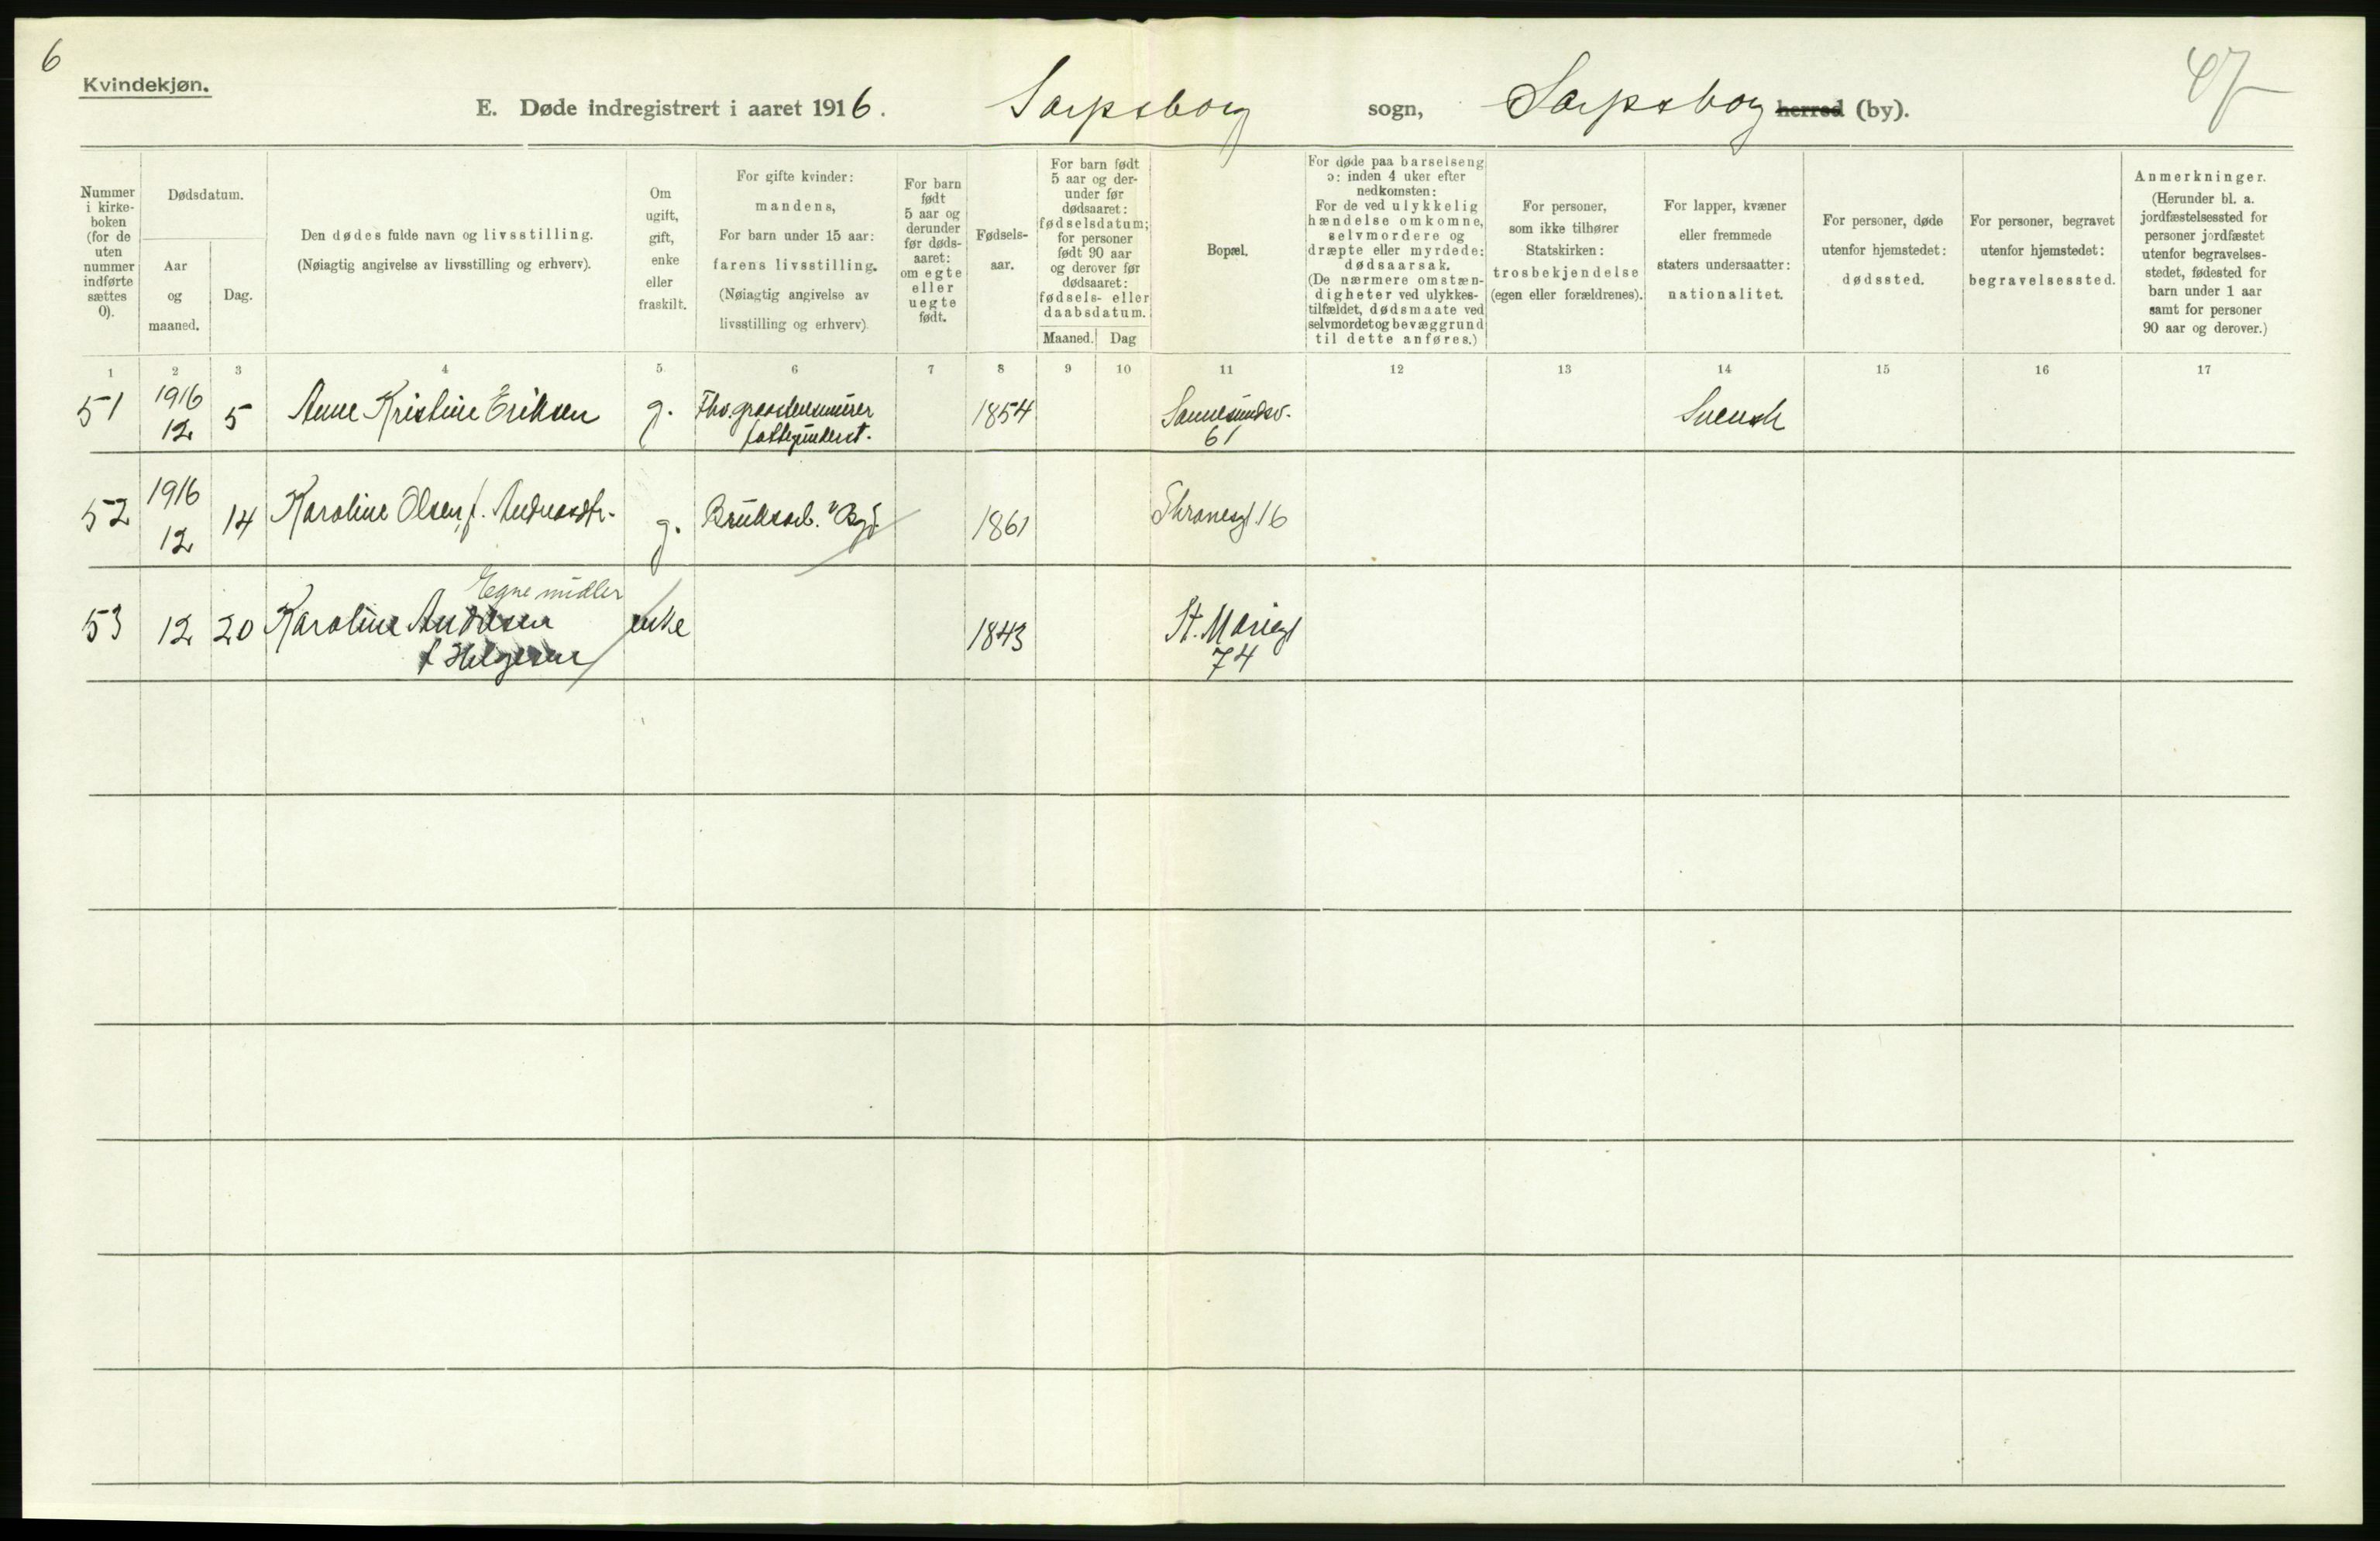 6
Kvindekjøn.
47
E. Døde indregistrert i aaret 1916. Sarpsborg sogn, Sarpsborg herred (by).
Nummer
i kirke-
boken
(for de
uten
nummer
indførte
sættes
0).
Dødsdatum.
Aar
og
maaned.
Dag.
Den dødes fulde navn og livsstilling.
(Nøiagtig angivelse av livsstilling og erhverv).
Om
ugift,
gift,
enke
eller
fraskilt.
For gifte kvinder:
mandens,
For barn under 15 aar:
farens livsstilling.
(Nøiagtig angivelse av
livsstilling og erhverv)
For barn
født
5 aar og
derunder
før døds-
aaret:
om egte
eller
uegte
født.
Fødsels-
aar.
For barn født
5 aar og der-
under før
dødsaaret:
fødselsdatum;
for personer
født 90 aar
og derover før
dødsaaret:
fødsels- eller
daabsdatum.
Maaned. Dag
Bopæl.
For døde paa barselseng
ɔ: inden 4 uker efter
nedkomsten:
For de ved ulykkelig
hændelse omkomne,
selvmordere og
dræpte eller myrdede:
dødsaarsak.
(De nærmere omstæn-
digheter ved ulykkes-
tilfældet, dødsmaate ved
selvmordet og bevæggrund
til dette anføres.)
For personer,
som ikke tilhører
Statskirken:
trosbekjendelse
(egen eller forældrenes).
For lapper, kvæner
eller fremmede
staters undersaatter:
nationalitet.
For personer, døde
utenfor hjemstedet:
dødssted.
For personer, begravet
utenfor hjemstedet:
begravelsessted.
Anmerkninger.
(Herunder bl. a.
jordfæstelsessted for
personer jordfæstet
utenfor begravelses-
stedet, fødested for
barn under 1 aar
samt for personer
90 aar og derover.)
1 2 3 4 5 6 7 8 9 10 11 12 13 14 15 16 17
51 1916 12 5 Anne Kristine Eriksen g. Fhv. graastensmurer 1854 Sannesundsv. 61 Svensk
fattigunderst.
52 1916 12 14 Karoline Olsen, f. Andreasdtr. g. Bruksarb. 1861 Thranesgt 16
Egne midler
53 12 20 Karoline Andersen enke 1843 St. Mariegt
74